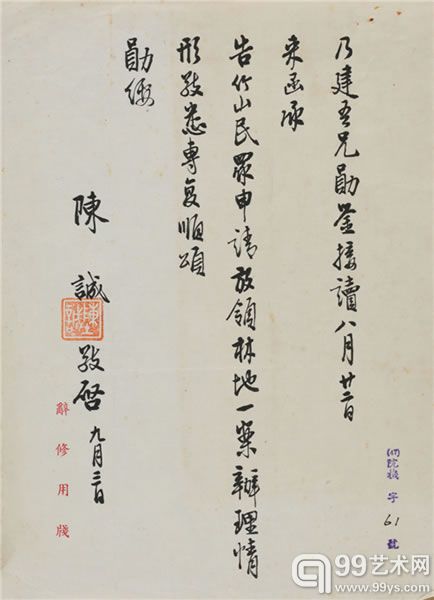 乃建吾兄勛鑒接讀八月廿二日
来函承
告竹山民眾申請放領林地一案辦理情
形敬悉專复順頌
勛綏
陳誠敬啓九月三日
辭修用牋
字61號
99艺术网
www.99ys.com